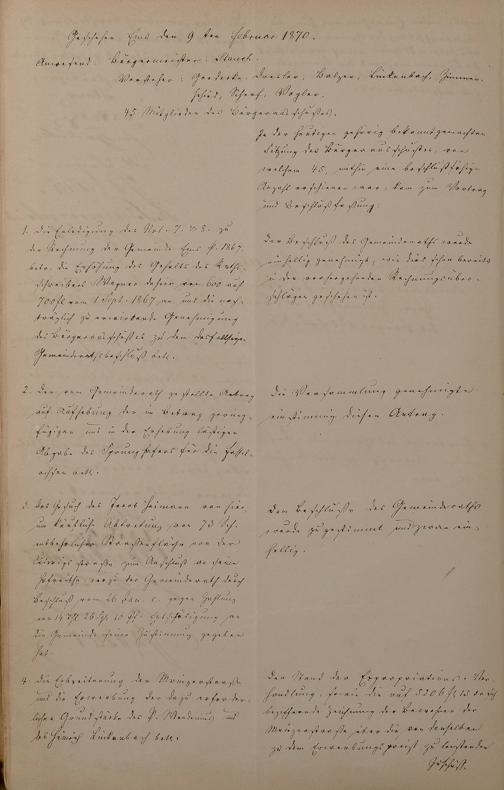 Geschehen Ems den 9ten Februar 1870.
Anwesend Bürgermeister: Stauch.
Vorsteher: Gerderke, Dresler, Balzer, Linkenbach, Zimmer-
schied, Scherf, Vogler.
45 Mitglieder des Bürgerausschusses.
In der heutigen gehörig bekanntgemachten
Sitzung des Bürgerausschusses, von
welchem 45, mithin eine beschlußfähige
Anzahl erschienen war, kam zum Vortrag
und Beschlußfassung:
1. Die Erledigung der Not. 7. & 8. zu
der Rechnung der Gemeinde Ems p. 1867
betr. die Erhöhung des Gehalts des Raths-
schreibers Wagner dahier von 600 auf
700 fl vom 1 Sept. 1867 an und die nach-
träglich zu erwirkende Genehmigung
des Bürgerausschusses zu dem desfallsigen
Gemeinderathsbeschluß betr.
Der Beschluß des Gemeinderaths wurde
einhellig genehmigt, wie dies schon bereits
in den vorhergehenden Rechnungsüber-
schlägen geschehen ist.
2. Den vom Gemeinderath gestellte Antrag
auf Aufhebung der im Betrag gering-
fügigen und in der Erhebung lästigen
Abgabe des Sprunghafers für die Fassel-
ochsen betr.
Die Versammlung genehmigte
einstimmig diesen Antrag.
3. Das Gesuch des Jacob Heimann von hier,
um käufliche Abtretung von 73 Sch.
entbehrlicher Straßenfläche von der
straße zum Anschluß an seine
Hofraithe, wozu der Gemeinderath durch
Beschluß vom 26 Jan. c. gegen Zahlung
von 14 Thl. 26 Sgr. 10 Pf. Entschädigung an
die Gemeinde seine Zustimmung gegeben
hat.
Dem Beschlusse des Gemeinderaths
wurde zugestimmt und zwar ein-
hellig.
4. Die Erbreiterung der Mainzerstraße
und die Erwerbung der dazu erforder-
lichen Grundstücke des P. und
des Heinrich Linkenbach betr.
Der Stand der Expropriations-Ver-
handlung, sowie die auf 5206 fl
beziffernde Zeichnung der Bewohner der
Mainzerstraße über die von denselben
zu dem Erwerbungspreise zu leistenden
Zuschüsse.